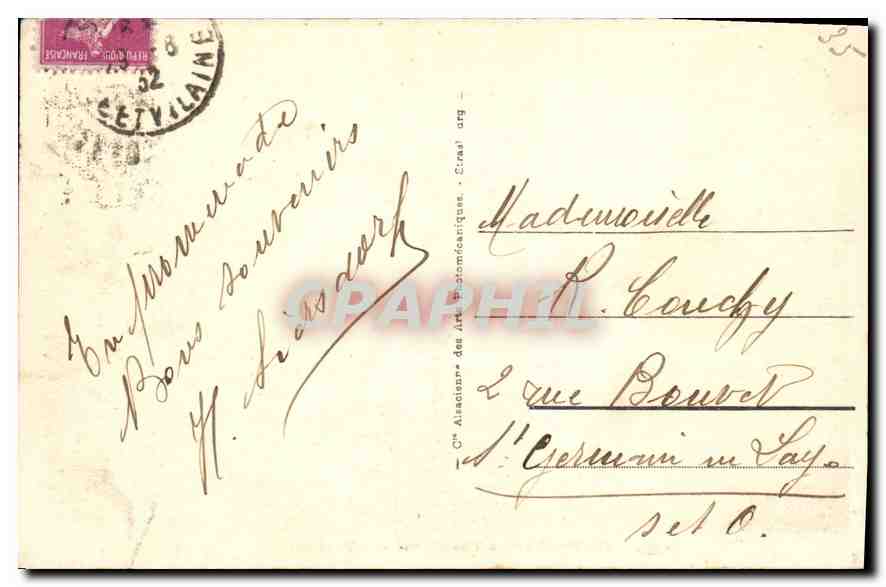 REPUBLIQUE FRANÇAISE
8
32
ET VILAINE
35
En promenade
Bons souvenirs
H.
Cie Alsacienne des Arts Photomécaniques. - Strasbourg
CPAPHIL
Mademoiselle
R. Couchy
2 rue Bouvet
St Germain en Lay.
S et O.